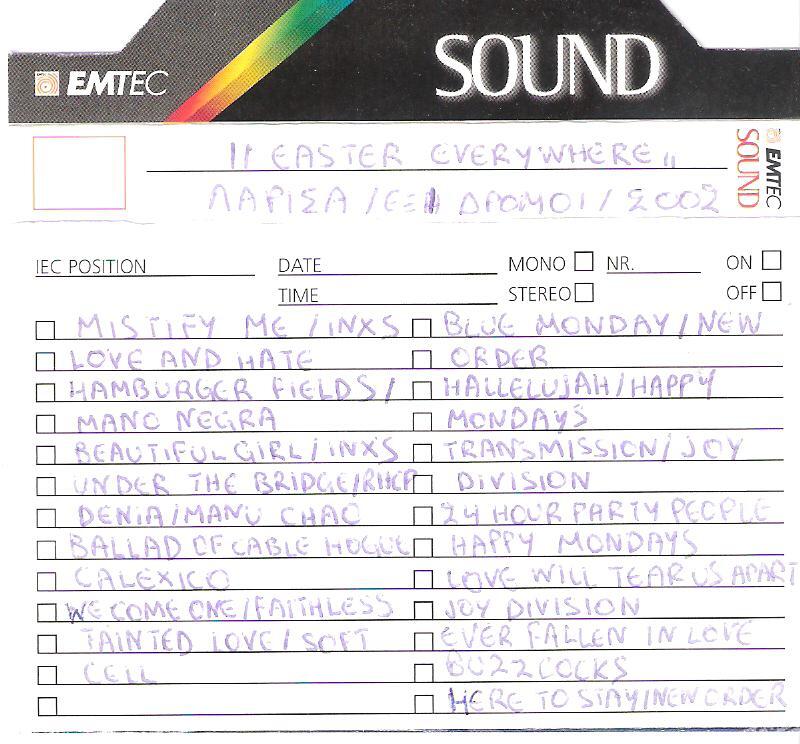 EMTEC SOUND
" EASTER EVERYWHERE "
ΛΑΡΙΣΑ / ΔΡΟΜΟΙ / 2002
EMTEC SOUND
IEC POSITION DATE MONO NR. ON
TIME STEREO OFF
MISTIFY ME / INXS
LOVE AND HATE
HAMBURGER FIELDS /
MANO NEGRA
BEAUTIFUL GIRL / INXS
UNDER THE BRIDGE/RHCP
DENIA / MANU CHAO
BALLAD OF CABLE HOGUE
CALEXICO
WE COME ONE / FAITHLESS
TAINTED LOVE / SOFT
CELL
BLUE MONDAY / NEW
ORDER
HALLELUJAH / HAPPY
MONDAYS
TRANSMISSION / JOY
DIVISION
24 HOUR PARTY PEOPLE
HAPPY MONDAYS
LOVE WILL TEAR US APART
JOY DIVISION
EVER FALLEN IN LOVE
BUZZCOCKS
HERE TO STAY/NEW ORDER